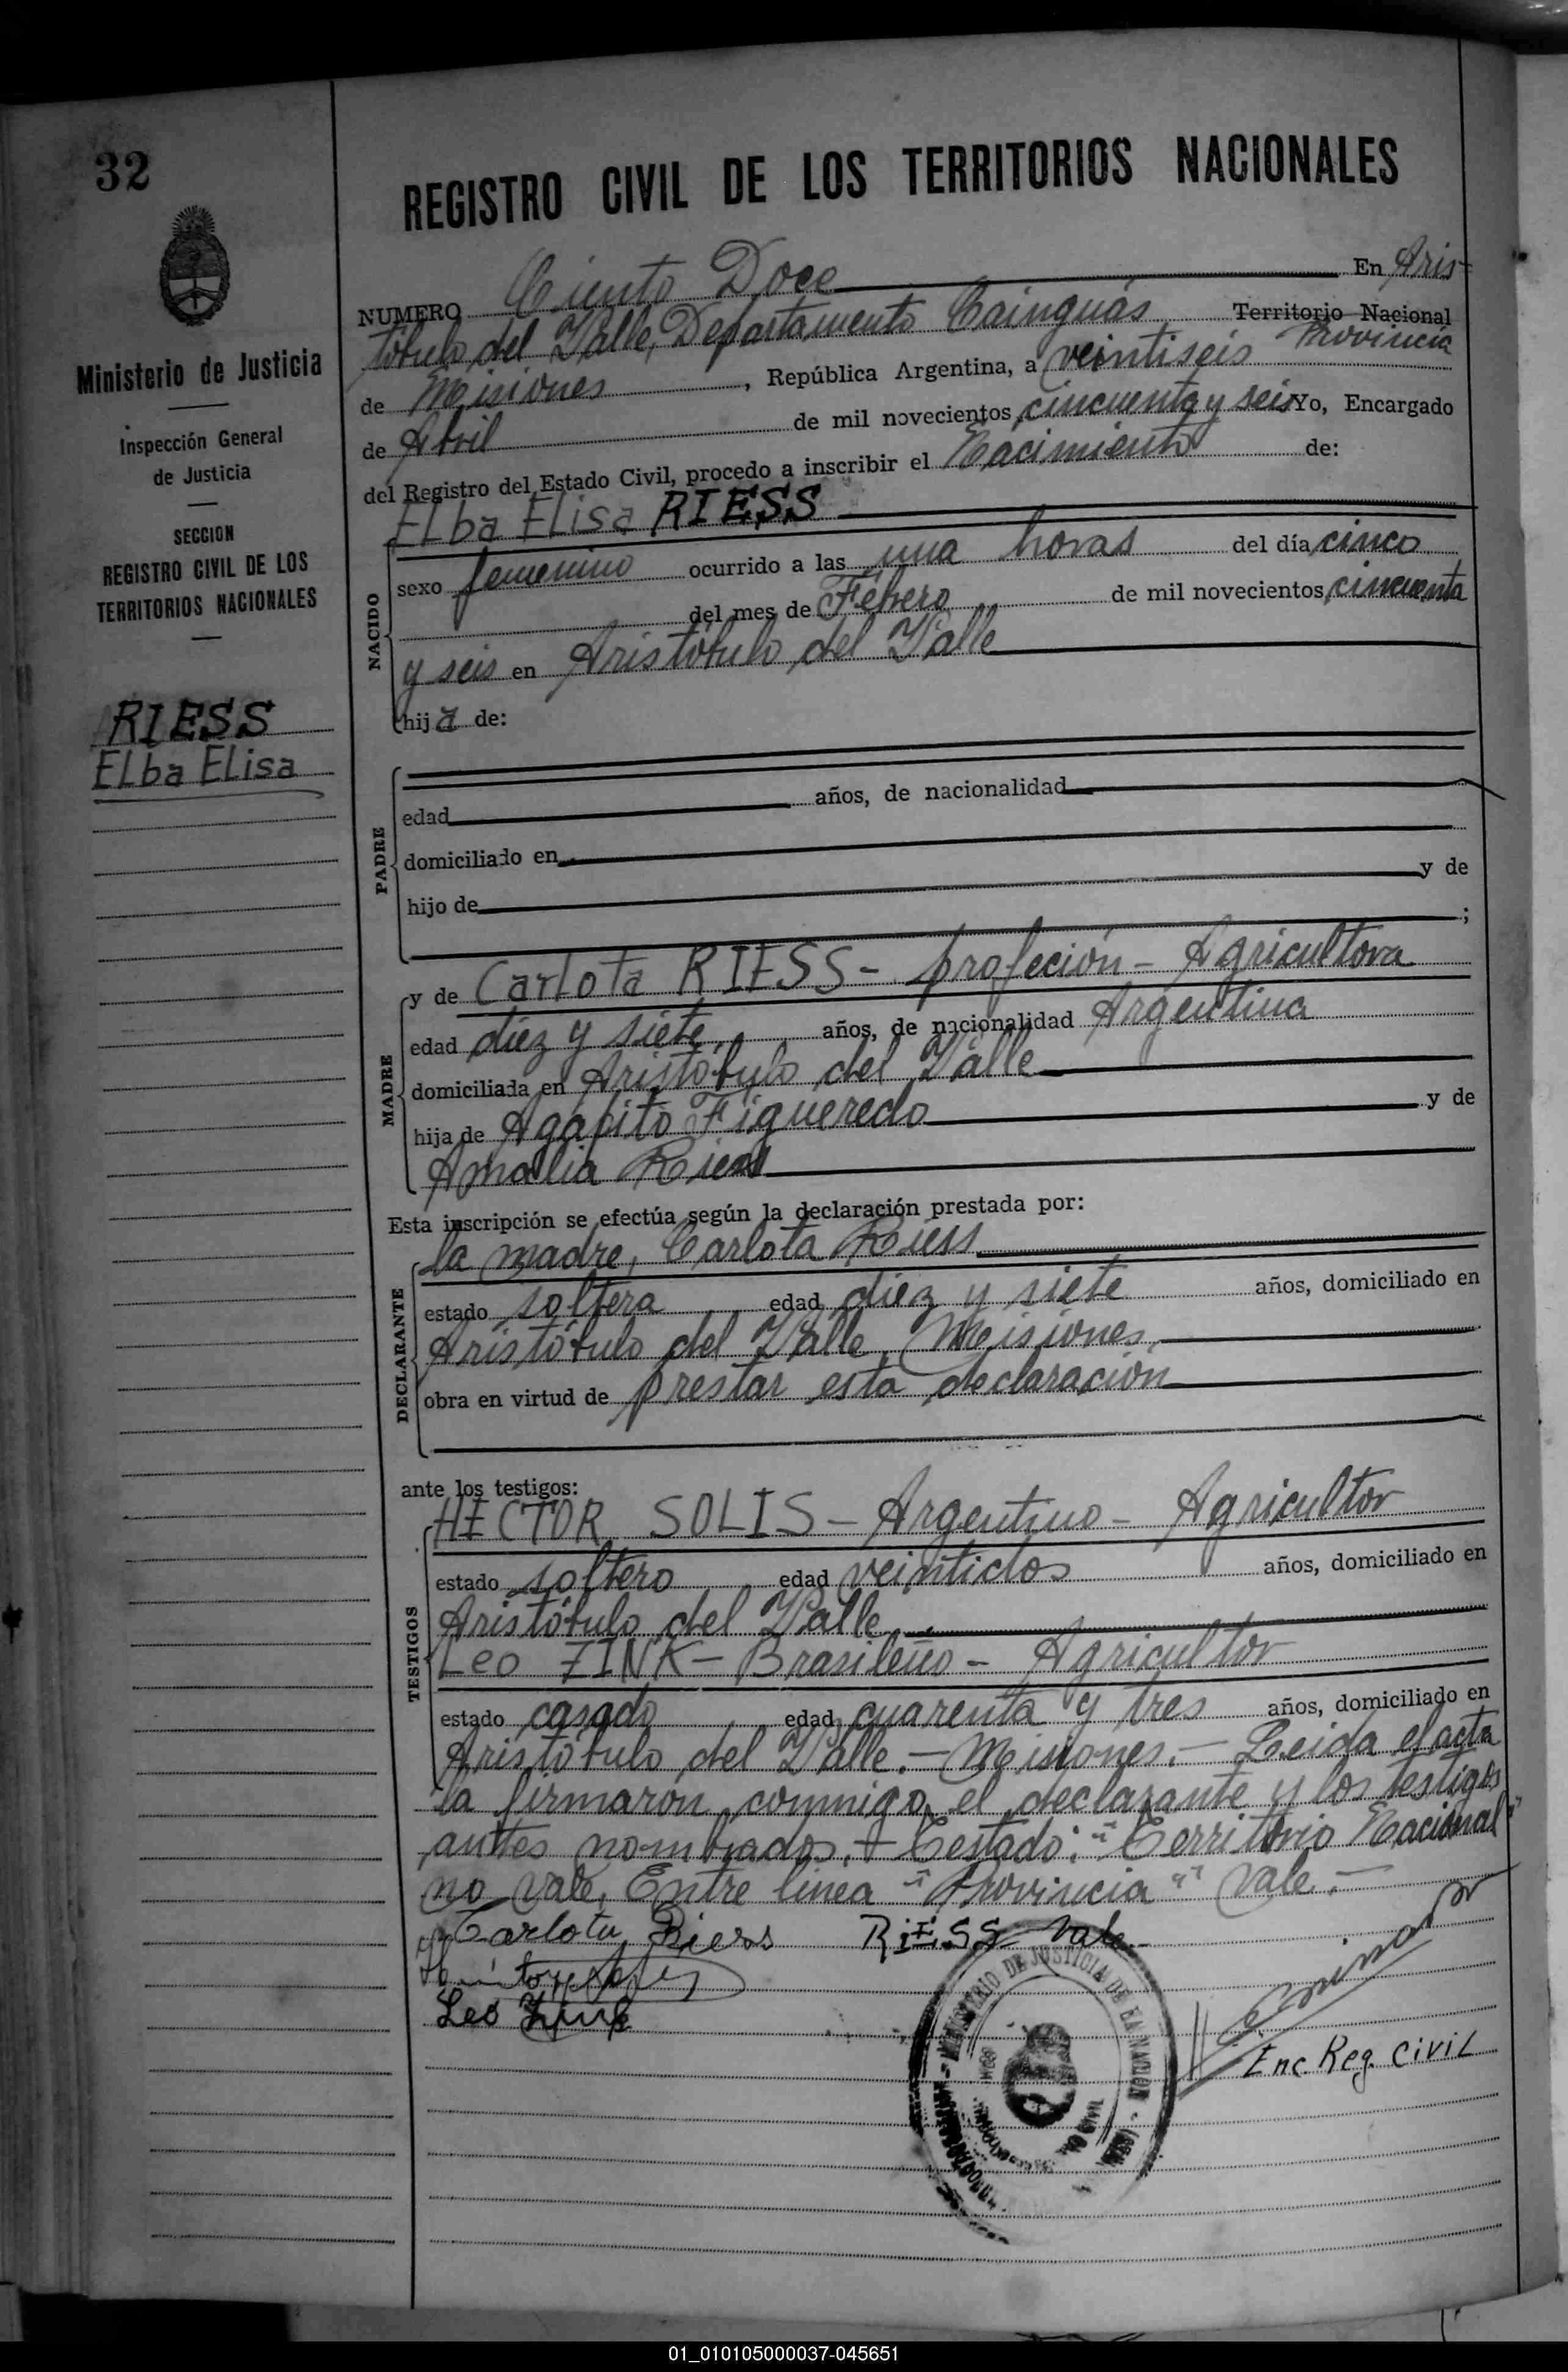 32
Ministerio de Justicia
Inspección General
de Justicia
SECCION
REGISTRO CIVIL DE LOS
TERRITORIOS NACIONALES
RIESS
Elba Elisa
REGISTRO CIVIL DE LOS TERRITORIOS NACIONALES
NUMERO Ciento Doce En Aris-
tóbulo del Valle, Departamento Cainguás Territorio Nacional
Provincia
de Misiones, República Argentina, a veintiseis
de Abril de mil novecientos cincuenta y seis Yo, Encargado
del Registro del Estado Civil, procedo a inscribir el Nacimiento de:
Elba Elisa RIESS
NACIDO
sexo femenino ocurrido a las una horas del día cinco
del mes de Febrero de mil novecientos cincuenta
y seis en Aristóbulo del Valle
hija de:
PADRE
edad años, de nacionalidad
domiciliado en
hijo de y de
;
MADRE
y de Carlota RIESS - profeción - Agricultora
edad diez y siete años, de nacionalidad Argentina
domiciliada en Aristóbulo del Valle
hija de Agapito Figueredo y de
Amalia Riess
Esta inscripción se efectúa según la declaración prestada por:
DECLARANTE
la madre, Carlota Riess
estado soltera edad diez y siete años, domiciliado en
Aristóbulo del Valle, Misiones
obra en virtud de prestar esta declaración
ante los testigos:
TESTIGOS
HECTOR SOLIS - Argentino - Agricultor
estado soltero edad veintidos años, domiciliado en
Aristóbulo del Valle
Leo ZINK - Brasileño - Agricultor
estado casado edad cuarenta y tres años, domiciliado en
Aristóbulo del Valle. - Misiones. - Leida el acta
la firmaron conmigo el declarante y los testigos
antes nombrados. + Testado: "Territorio Nacional"
no vale, Entre linea "Provincia" Vale. -
Carlota Riess RiESS Vale
Leo Zink
MINISTERIO DE JUSTICIA DE LA NACION
Enc. Reg. Civil
01_010105000037-045651